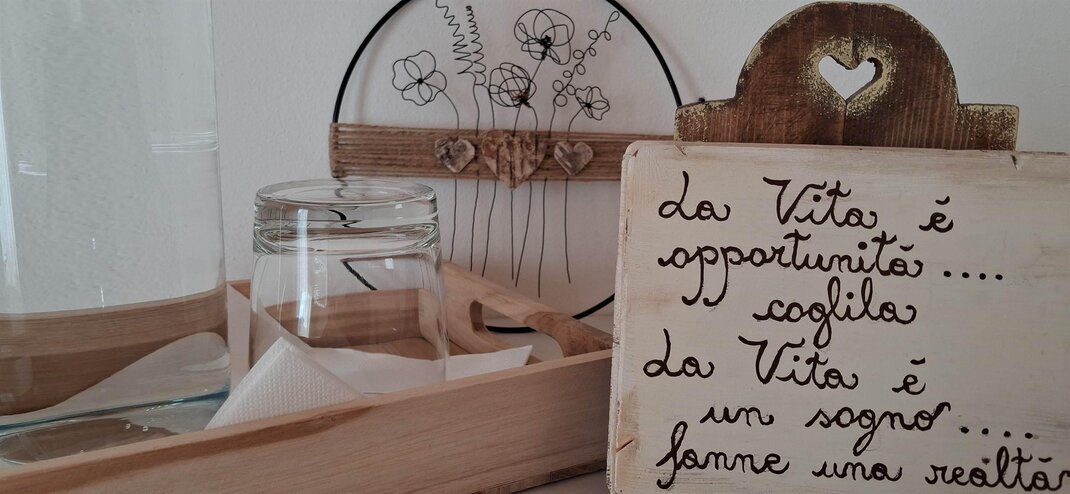 La Vita é
opportunitá....
coglila
La Vita é
un sogno....
fanne una realtá